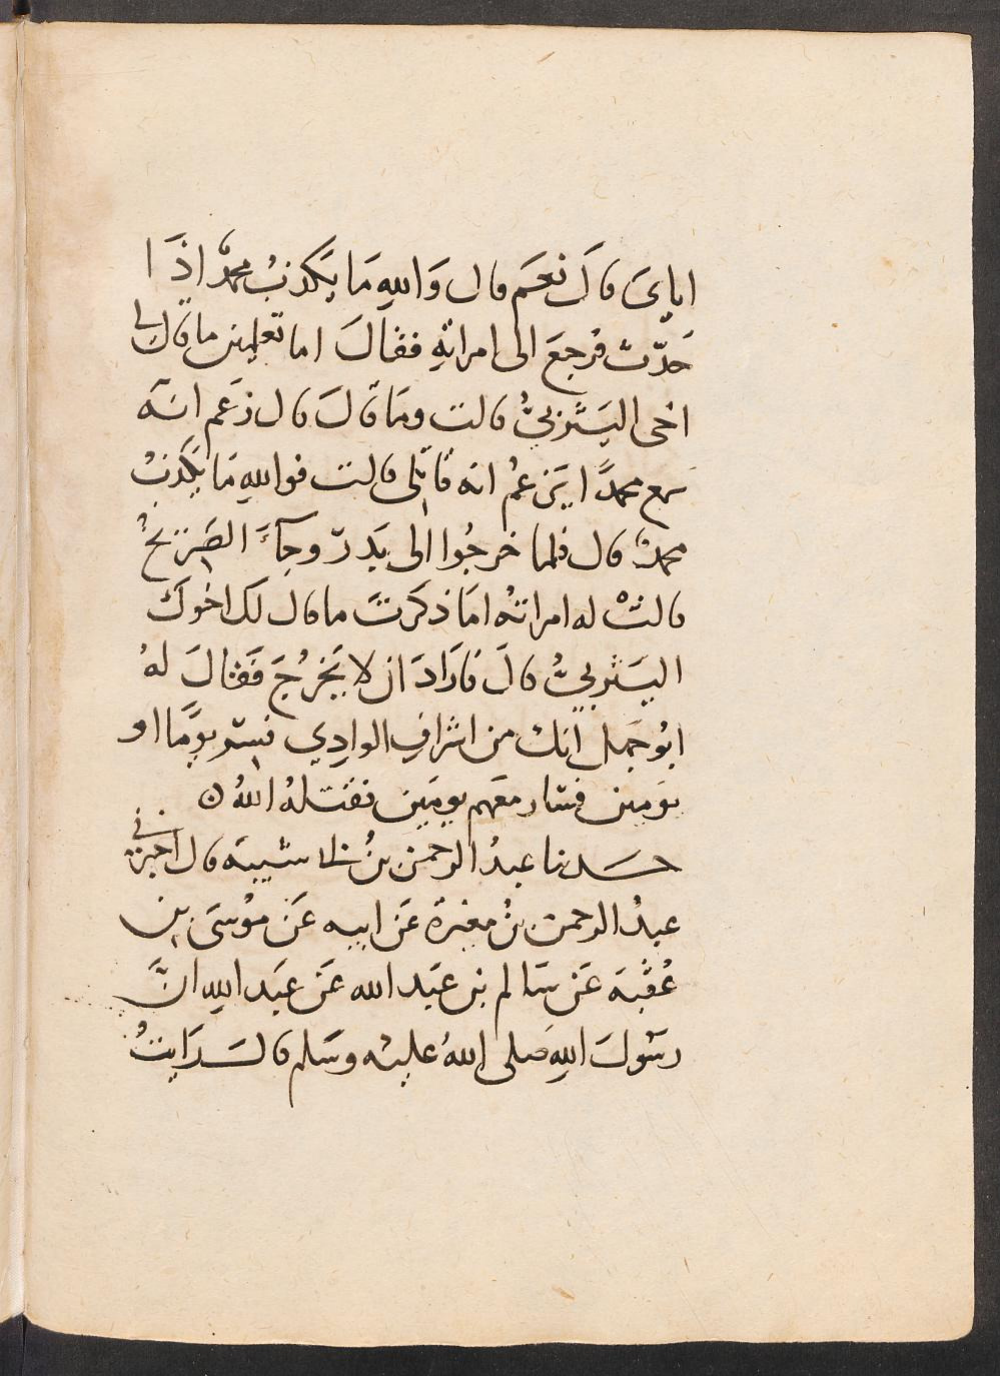 اياي قَالَ نعَم قال وَاللهِ مَا يَكذبُ محمدٌ اِذَا
حَدّث فرجعَ الى امراتهِ فقالَ اما تعلمين ما قال لي
اخى اليَثربيُّ قالت ومَا قَالَ قال زعَم انهُ
سمع محمدًا يَزعمُ انه قاتلى قالت فوالله مَا يَكذبُ
محمدٌ قال فلما خرجُوا الى بَدرٍ وجآءَ الصَريخُ
قالتْ له امراتهُ امَا ذكرتَ ما قال لك اخوك
اليَثربيُّ قالَ فارَادَ ان لا يَخرُجَ فَقالَ لهُ
ابُو جَهل انك من اشرافِ الوادِي فسِر يومًا او
يومين فسَار معهم يومَين فقتلهُ اللهُ ه
حـــدثنا عبدُ الرحمن بنُ شيبة قال اخبرني
عبدُ الرحمن بنُ مغيرة عَن ابيه عَن موُسَى بنِ
عُقبَة عَن سَالم بن عبَد الله عَن عبَد اللهِ انَّ
رسَولَ اللهِ صَلى اللهُ عليْه وسَلم قالـــ رَايتُ